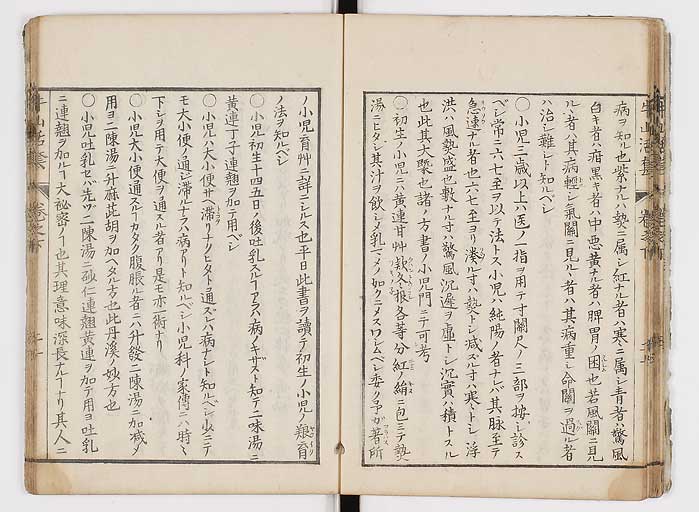 病ヲ知ル也紫ナルハ熱ニ属シ紅ナル者ハ寒ニ属シ青者ハ驚風
白キ者ハ疳黒キ者ハ中悪黄ナル者ハ脾胃ノ困也若風關ニ見
ル者ハ其病輕シ氣關ニ見ル者ハ其病重シ命關ヲ過ル者
ハ治シ難シト知ルベシ
〇小児三歳以上ハ医ノ一指ヲ用テ寸關尺ノ三部ヲ按シ診ス
ベシ常ニ六七至ヲ以テ法トス小児ハ純陽ノ者ナレバ其脉至テ
急速ナル者也六七至ヨリ湊ル寸ハ熱トシ減ズル寸ハ寒トシ浮
洪ハ風熱盛也數ナル寸ハ驚風沉遲ヲ虚トシ沉實ハ積トスル
也此其大槩也諸ノ方書ノ小児門ニテ可考
〇初生ノ小児ニハ黄連甘艸各等分紅ノ絹ニ包ミテ熱
湯ニヒタシ其汁ヲ飲シメ乳ニ委ク予ガ著所
ノ小児育艸ニ詳ニシルス也平日此書ヲ讀テ初生ノ小児ノ養育
ノ法ヲ知ルベシ
〇小児初生十四五日ノ後吐乳スルアラハ病ノキザスト知テ二味湯ニ
黄連丁子連翹ヲ加テ用ベシ
〇小児ハ大小便サヘ滞リナクヒタト通ズレバ病ナシト知ルベシ少ニテ
モ大小便ノ通ジ滞ルナラハ病アリト知ルベシ小児科ノ家傳ニハ時々
下シヲ用テ大便ヲ通ズル者アリ是モ亦一術ナリ
〇小児大小便通スルカタク腹脹ル者ニハ升發二陳湯ニ加減メ
用ヨ二陳湯ニ升麻此胡ヲ加ヘタル方也此丹溪ノ妙方也
〇小児吐乳セバ先ツ二陳湯ニ砂仁連翹黄連ヲ加テ用ヨ吐乳
ニ連翹ヲ加ルヿ大秘密ノヿ也其理意味深長ナルヿナリ其人ニ